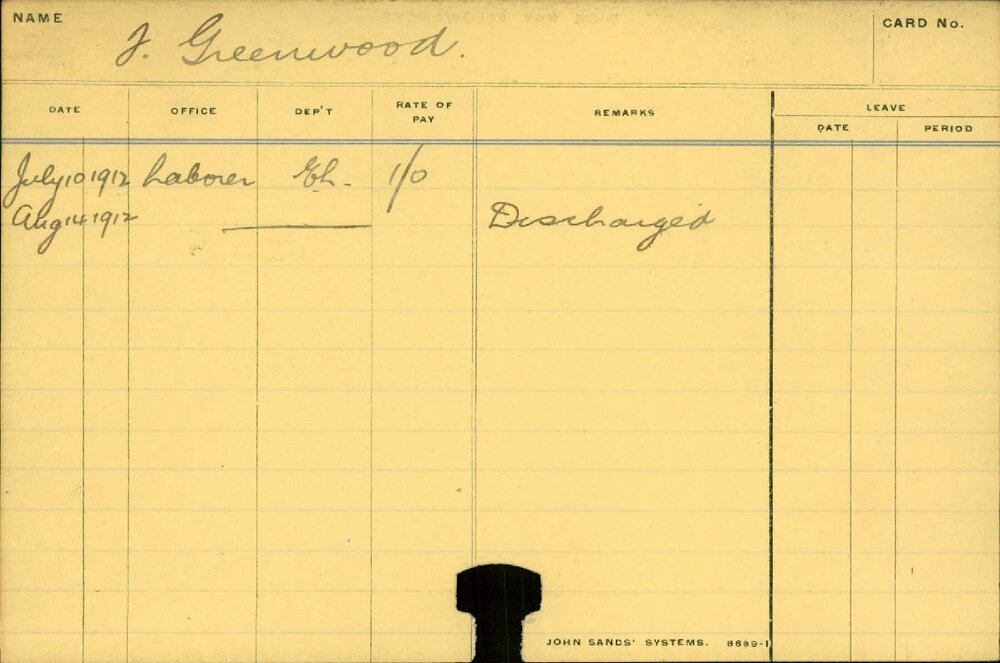 NAME
J. Greenwood.
CARD No.
DATE OFFICE DEP'T RATE OF PAY REMARKS LEAVE
DATE PERIOD
July 10 1912 Laborer Eh. 1/0
Aug 14 1912 Discharged
JOHN SANDS' SYSTEMS. 8689-1